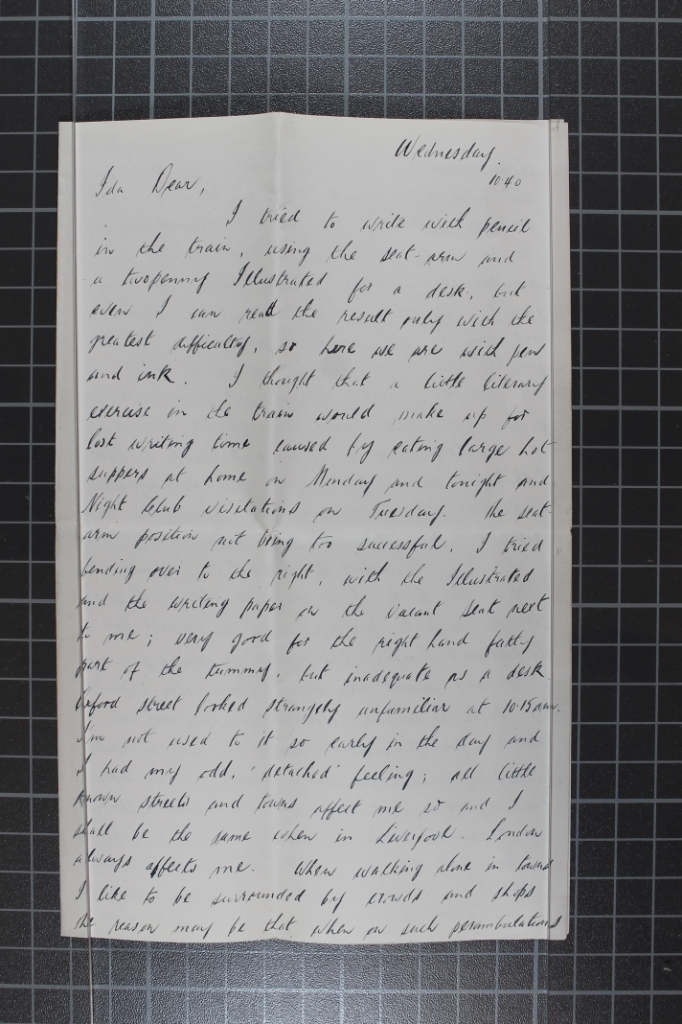 Wednesday.
10.40
Ida Dear,
I tried to write with pencil
in the train, using the seat-arm and
a twopenny Illustrated for a desk, but
even I can read the result only with the
greatest difficulty, so here we are with pen
and ink. I thought that a little literary
exercise in the train would make up for
lost writing time caused by eating large hot
suppers at home on Monday and tonight and
Night Club visitations on Tuesday. The seat-
arm position not being too successful, I tried
bending over to the right, with the Illustrated
and the writing paper on the vacant seat next
to me; very good for the right hand fatty
part of the tummy, but inadequate as a desk.
Oxford street looked strangely unfamiliar at 10.15am.
I'm not used to it so early in the day and
I had my odd, 'detached' feeling; all little
known streets and towns affect me so and I
shall be the same when in Liverpool. London
always affects me. When walking alone in town
I like to be surrounded by crowds and shops
the reason may be that when on such perambulations